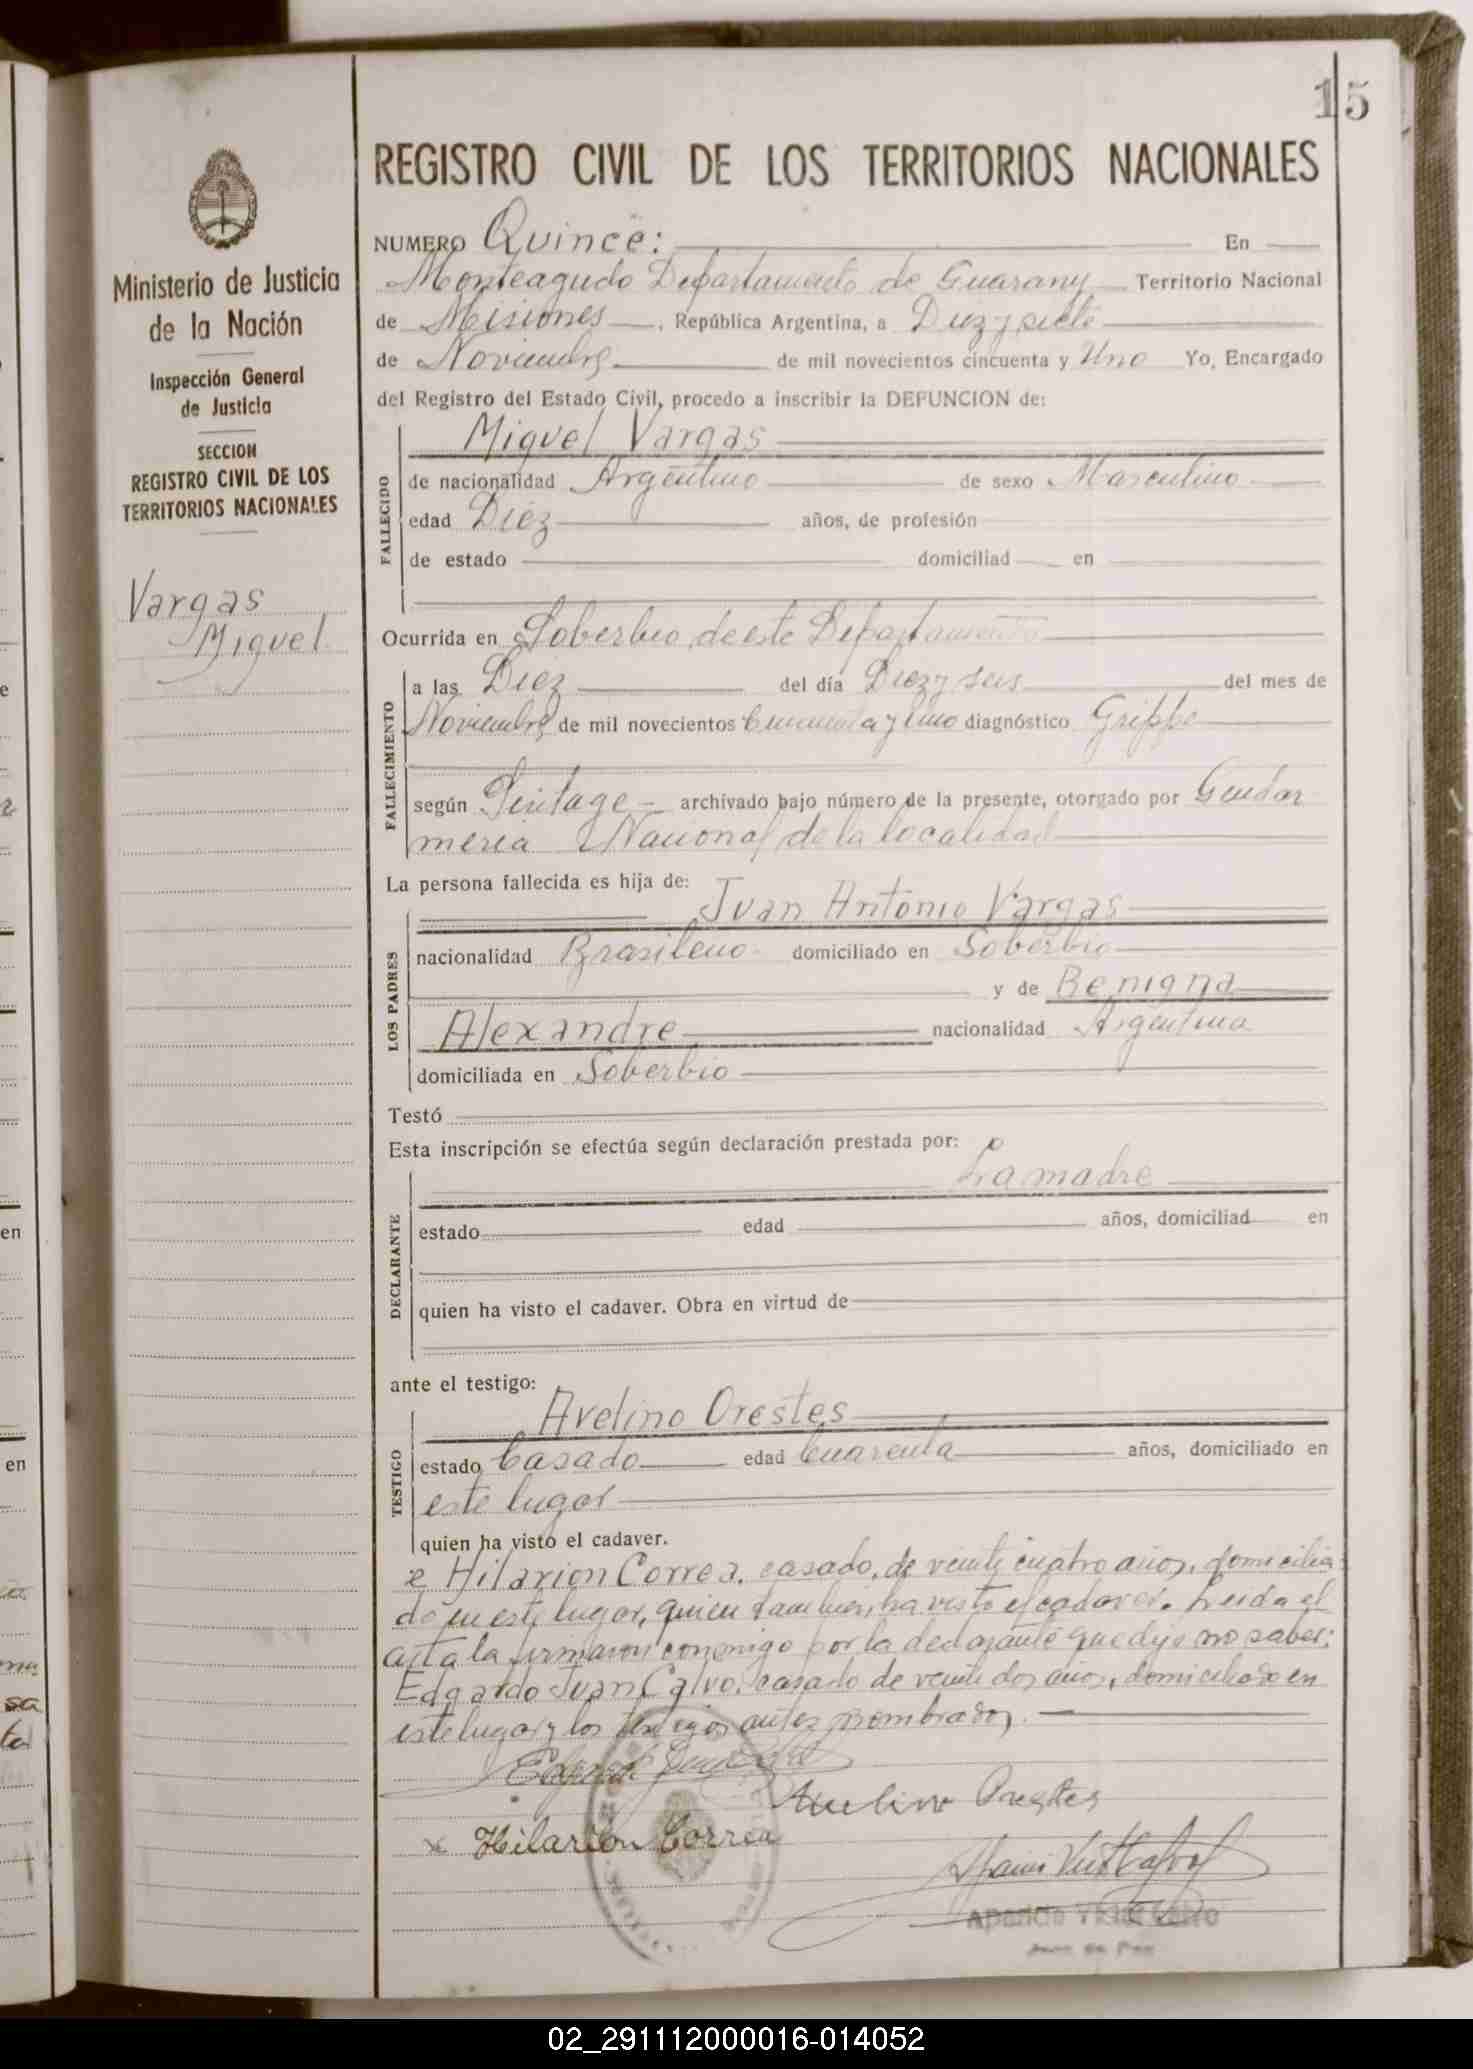 15
REGISTRO CIVIL DE LOS TERRITORIOS NACIONALES
Ministerio de Justicia
de la Nación
Inspección General
de Justicia
SECCION
REGISTRO CIVIL DE LOS
TERRITORIOS NACIONALES
Vargas
Miguel
NUMERO Quince: En
Monteagudo Departamento de Guarany Territorio Nacional
de Misiones, República Argentina, a Diez y siete
de Noviembre de mil novecientos cincuenta y Uno Yo, Encargado
del Registro del Estado Civil, procedo a inscribir la DEFUNCION de:
Miguel Vargas
FALLECIDO
de nacionalidad Argentino de sexo Masculino
edad Diez años, de profesión
de estado domiciliad en
Ocurrida en Soberbio, de este Departamento
FALLECIMIENTO
a las Diez del día Diez y seis del mes de
Noviembre de mil novecientos Cincuenta y Uno diagnóstico Grippe
según Peritage archivado bajo número de la presente, otorgado por Gendar
meria Nacional de la localidad
La persona fallecida es hija de:
Juan Antonio Vargas
LOS PADRES
nacionalidad Brasileno domiciliado en Soberbio
y de Benigna
Alexandre nacionalidad Argentina
domiciliada en Soberbio
Testó
Esta inscripción se efectúa según declaración prestada por:
La madre
DECLARANTE
estado edad años, domiciliad en
quien ha visto el cadaver. Obra en virtud de
ante el testigo:
Avelino Orestes
TESTIGO
estado Casado edad Cuarenta años, domiciliado en
este lugar
quien ha visto el cadaver.
Hilarion Correa, casado, de veinte cuatro años, domicilia
do en este lugar, quien tambien, ha visto el cadaver. Leida el
acta la firmaron conmigo por la declarante que dijo no saber:
Edgardo Juan Calvo, casado de veinte dos años, domiciliado en
este lugar y los testigos antes nombrados.
Avelino Prestes
x Hilarion Correa
Aparicio Victor Calvo
Juez de Paz
en
en
sa
02_291112000016-014052